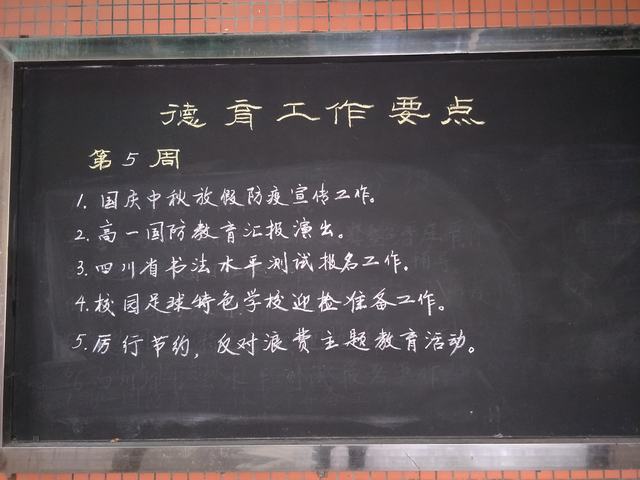 德育工作要点
第5周
1. 国庆中秋放假防疫宣传工作。
2. 高一国防教育汇报演出。
3. 四川省书法水平测试报名工作。
4. 校园足球特色学校迎检准备工作。
5. 厉行节约，反对浪费主题教育活动。